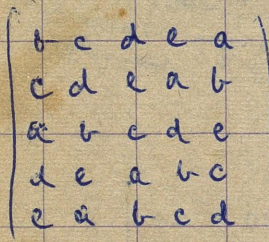 b c d e a
c d e a b
a b c d e
d e a b c
e a b c d